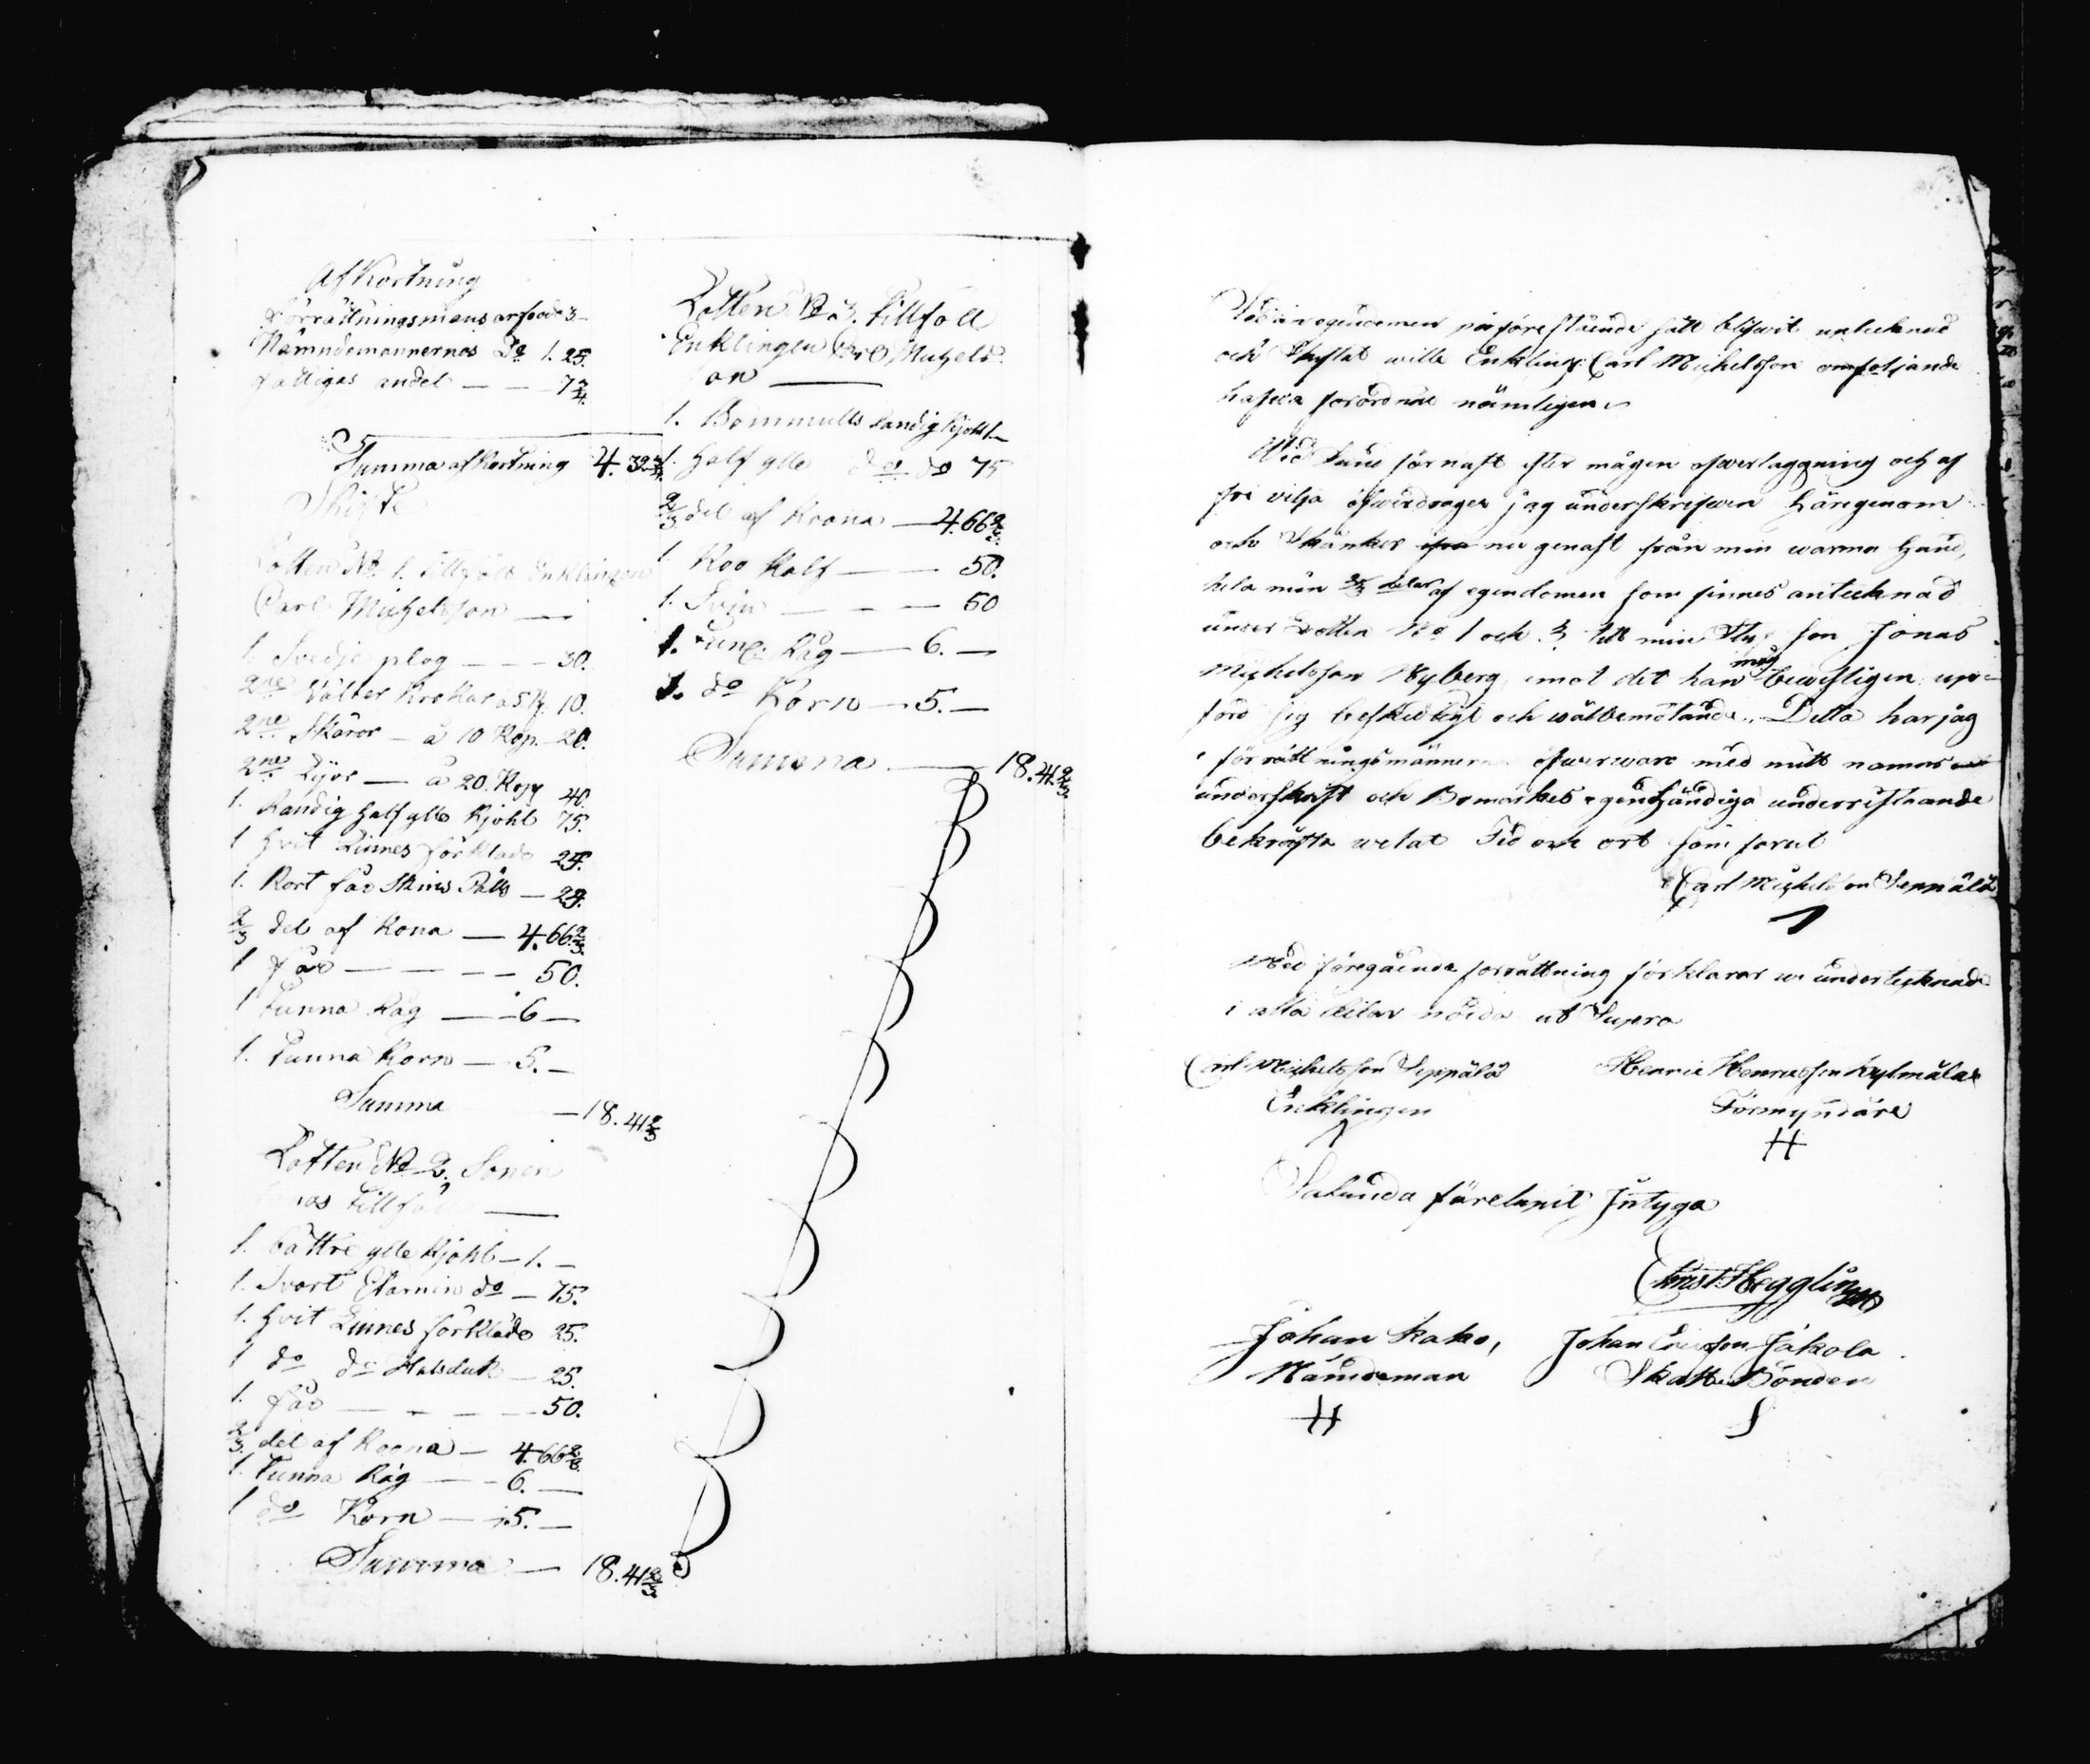 Afkortning
Förrättningsmans arfvode 3 —
Nämndemannernes Do 1. 25.
Fattigas andel — — 7 3/4
Summa afkortning 4. 32 3/4.
Skifte
Lotten No. 1. tillföll Enklingen
Carl Michelsson —
1. Svedje plog — — — 30.
2ne Välter Krokar à 5 K. 10.
2ne Skäror — à 10 Kop. — 20.
2ne Lijor — à 20. Kopp 40.
1. Randig half ylle Kjohl 75.
1 Hvit Linnes förkläde 25.
1. Kort får Skins Päls — 25.
2/3 del af Kona — 4. 66 2/3.
1 får — — — — 50.
1 Tunna Råg — — 6 —
1. Tunna Korn — 5. —
Summa — 18. 41 2/3
Lotten No 2. Sonen
tillföll —
1. bättre ylle Kjohl — 1. —
1. Svart Etamin do — 75.
1. Hvit Linnes förkläde 25.
1 do do Halsduk — 25.
1. får — — — — 50.
2/3 del af Koona — 4. 66 2/3.
1. Tunna Råg — — 6. —
1 do Korn — 5. —
Summa — 18. 41 2/3
Lotten No 3. tillföll
Enklingen Carl Michels-
on —
1. Bommulls randig Kjohl 1. —
1. Half ylle do do 75
2/3 del af Koona — 4. 66 2/3.
1 Koo Kalf — — 50.
1. Svin — — — 50
1. Tunna Råg — 6. —
1. do Korn — 5. —
Summa — 18. 41 2/3.
Sedan egendomen på förestående sätt blifwit antecknad
och Skiftat wille Enkling: Carl Michelsson omföljande
hafwa förordnat nämligen
Med sund förnuft efter mogen öfwerläggning och af
fri vilja öfwerdrager jag underskrifwen härigenom
och Skänker nu genast från min warma hand,
hela min 2/3 delar af egendomen som finnes antecknad
under Lotten No 1 och 3 till min son Jonas
Michelsson Nyberg emot det han mig bewisligen up-
förd sig beskedligt och wälbemötande. Detta har jag
i förrättningsmännernas öfwerwaro med mitt namns
underskrift och Bomärkes egenhändiga underristande
bekräfta welat Tid och ort som förut
Carl Michelsson Seppälä
Med föregående förrättning förklarar wi undertecknade
i alla delar nöjda ut Supra
Carl Michelsson Seppälä
Enklingen
Henric Henricsson Kylmälä
Förmyndare
H
Sålunda förelupit Intyga
Christ: Hegglin
Johan Kako,
Nämdeman
H
Johan Ericsson Jåkola
Skatte Bonden